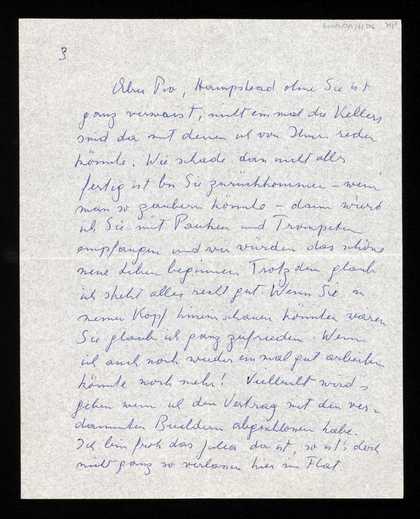 3
Aber Pio, Hampstead ohne Sie ist
ganz verwaist, nicht einmal die Kellers
sind da mit denen ich von Ihnen reden
könnte. Wie schade dass nicht alles
fertig ist bis Sie zurückkommen – wenn
man so zaubern könnte – dann würd
ich Sie mit Pauken und Trompeten
empfangen und wir würden das schöne
neue Leben beginnen. Trotzdem glaub
ich steht alles recht gut. Wenn Sie in
meinen Kopf hineinschauen könnten wären
Sie glaub ich ganz zufrieden. Wenn
ich auch noch wieder einmal gut arbeiten
könnte noch mehr! Vielleicht wird's
gehen wenn ich den Vertrag mit den ver-
dammten Buildern abgeschlossen habe.
Ich bin froh das Julia da ist, so ist's doch
nicht ganz so verlassen hier im Flat